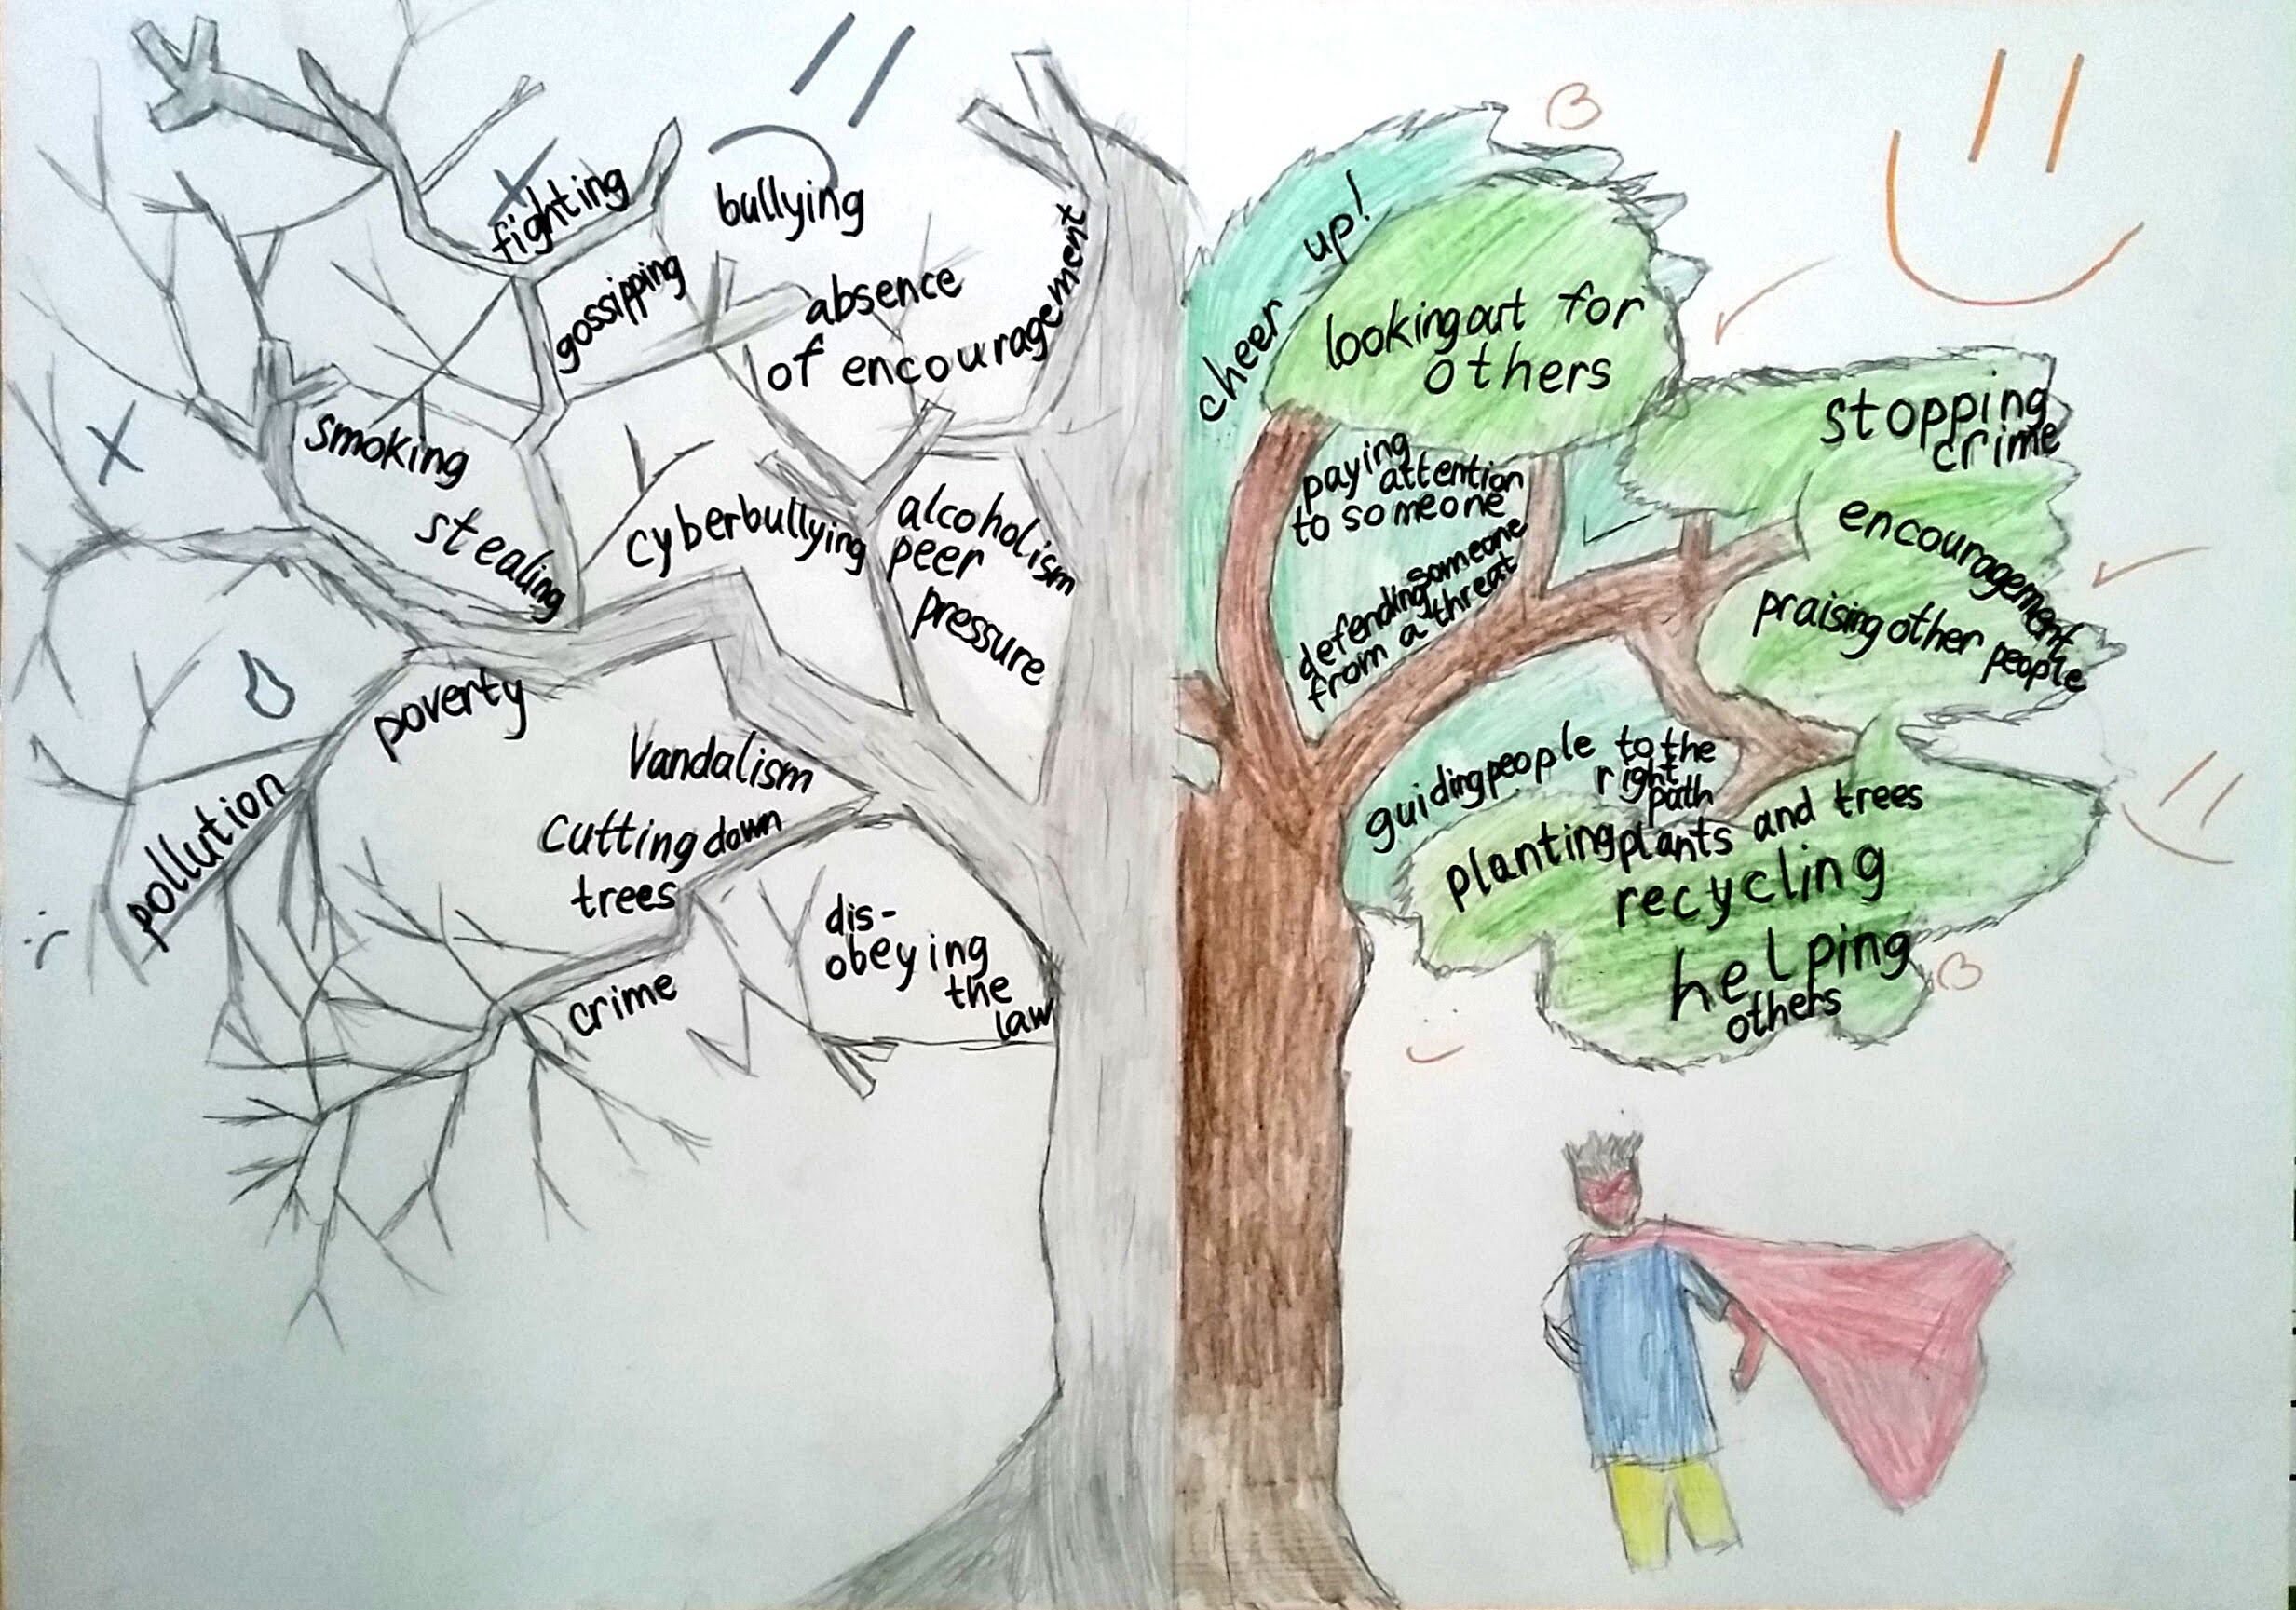 fighting
bullying
gossipping
absence
of encouragement
smoking
stealing
cyberbullying
alcoholism
peer
pressure
poverty
Vandalism
Cutting down
trees
pollution
crime
dis-
obeying
the
law
cheer
up!
looking out for
others
paying
attention
to someone
defending someone
from a threat
stopping
crime
encouragement
praising other people
guiding people to the
right
path
planting plants and trees
recycling
helping
others